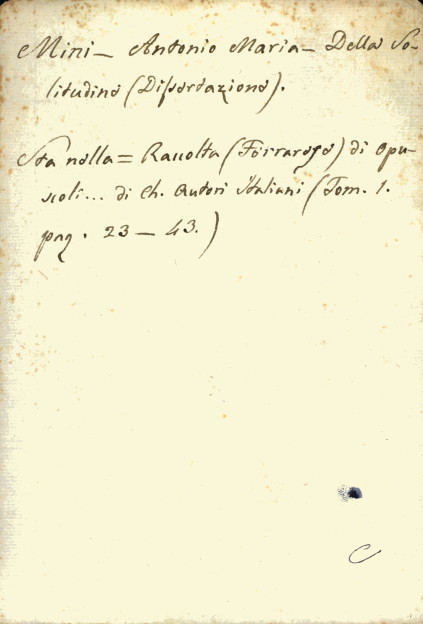 Mini — Antonio Maria — Della So-
litudine (Dissertazione).
Sta nella = Raccolta (Ferrarese) di opu-
scoli... di Ch. Autori Italiani (Tom. 1.
pag. 23 — 43.)
C